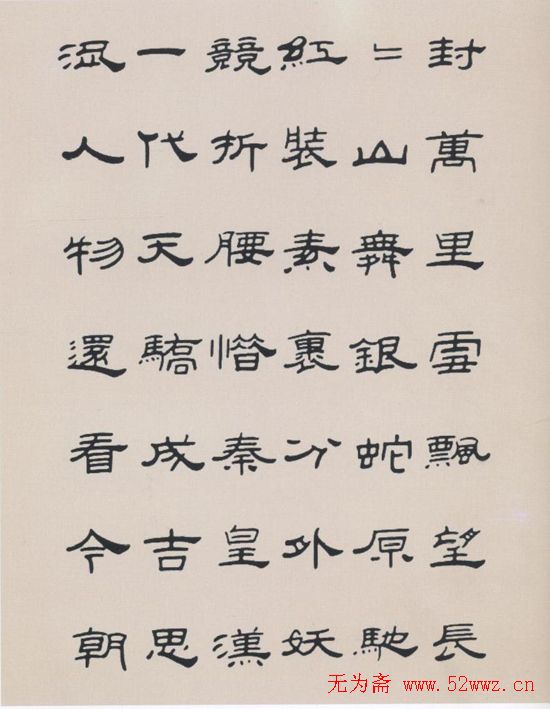 封萬里雪飄望長
〻山舞銀蛇原馳
紅裝素裹分外妖
競折腰惜秦皇漢
一代天驕成吉思
流人物還看今朝
无为斋 www.52wwz.cn